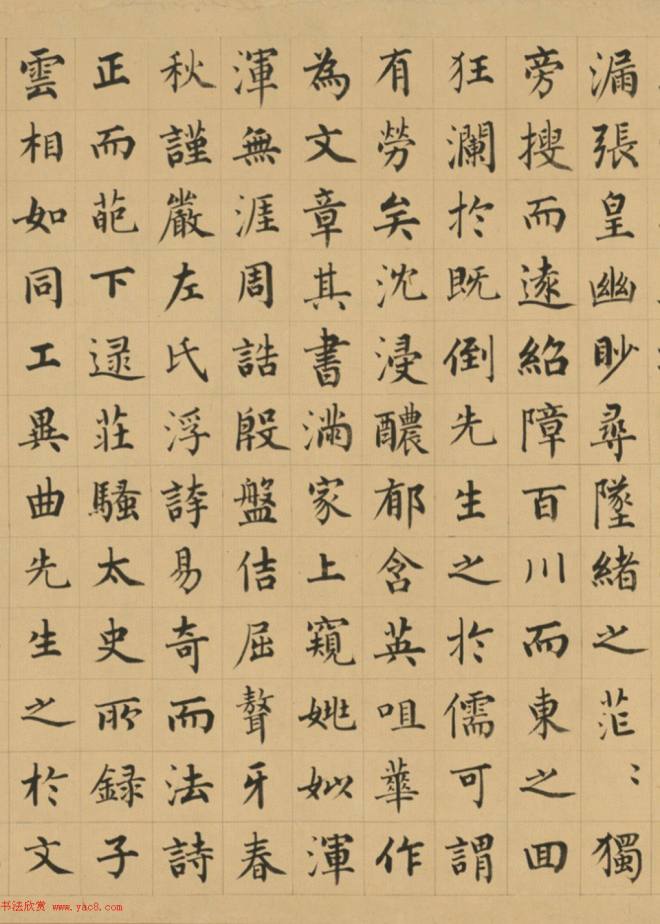 漏張皇幽眇尋墜緒之茫〻獨
旁搜而遠紹障百川而東之回
狂瀾於既倒先生之於儒可謂
有勞矣沈浸醲郁含英咀華作
為文章其書滿家上窺姚姒渾
渾無涯周誥殷盤佶屈聱牙春
秋謹嚴左氏浮誇易奇而法詩
正而葩下逯莊騷太史所錄子
雲相如同工異曲先生之於文
书法欣赏 www.yac8.com